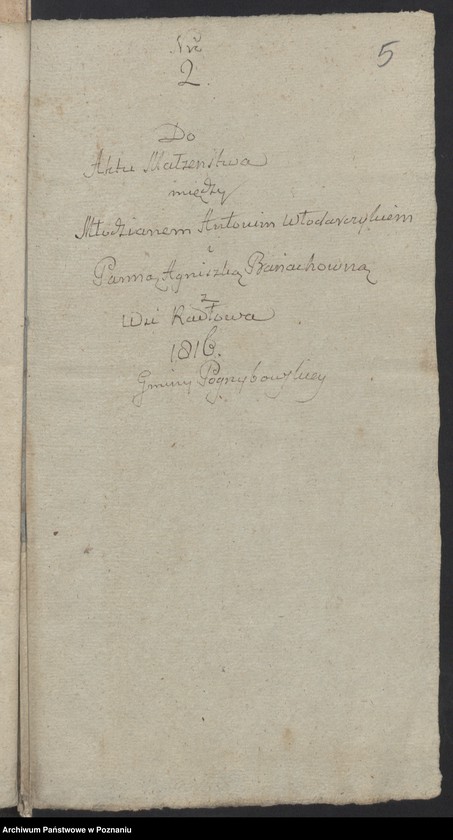 Nro
5
2
Do
Aktu Malzenstwa
między
Młodzianem Antonim Włodarczykiem
i
Panną Agniszką Banachowną
z
Wsi Radłowa
1816.
Gminy Pogrzybowskiey
Archiwum Państwowe w Poznaniu